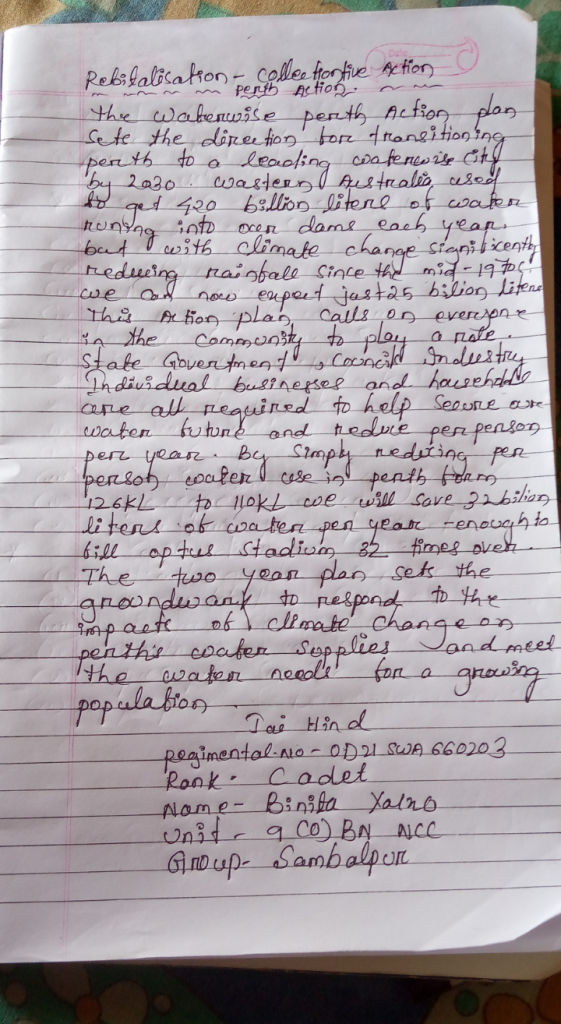 Rebitalisation - Collectiontive Action
Perth Action.
The Waterwise perth Action plan
Sets the direction for transitioning
perth to a leading waterwise City
by 2030. Wastern Australia used
to get 420 billion liters of water
runing into our dams each year.
but with climate change significently
reducing rainfall since the mid-1970s,
we can now expect just 25 bilion liters
This Action plan calls on everyone
in the community to play a role.
State Government, Councils Industry
Individual businesses and households
are all required to help secure our
water future and reduce per person
per year. By simply reducing per
person water use in perth form
126KL to 110KL we will save 32 bilion
liters of water per year - enough to
fill optus stadium 32 times over.
The two year plan sets the
groundwark to respond to the
impacts of climate change on
perth's water supplies and meet
the water needs for a growing
population.
Jai Hind
Regimental-No - OD21 SWA 660203
Rank - Cadet
Name - Binita
Unit - 9 (O) BN NCC
Group - Sambalpur